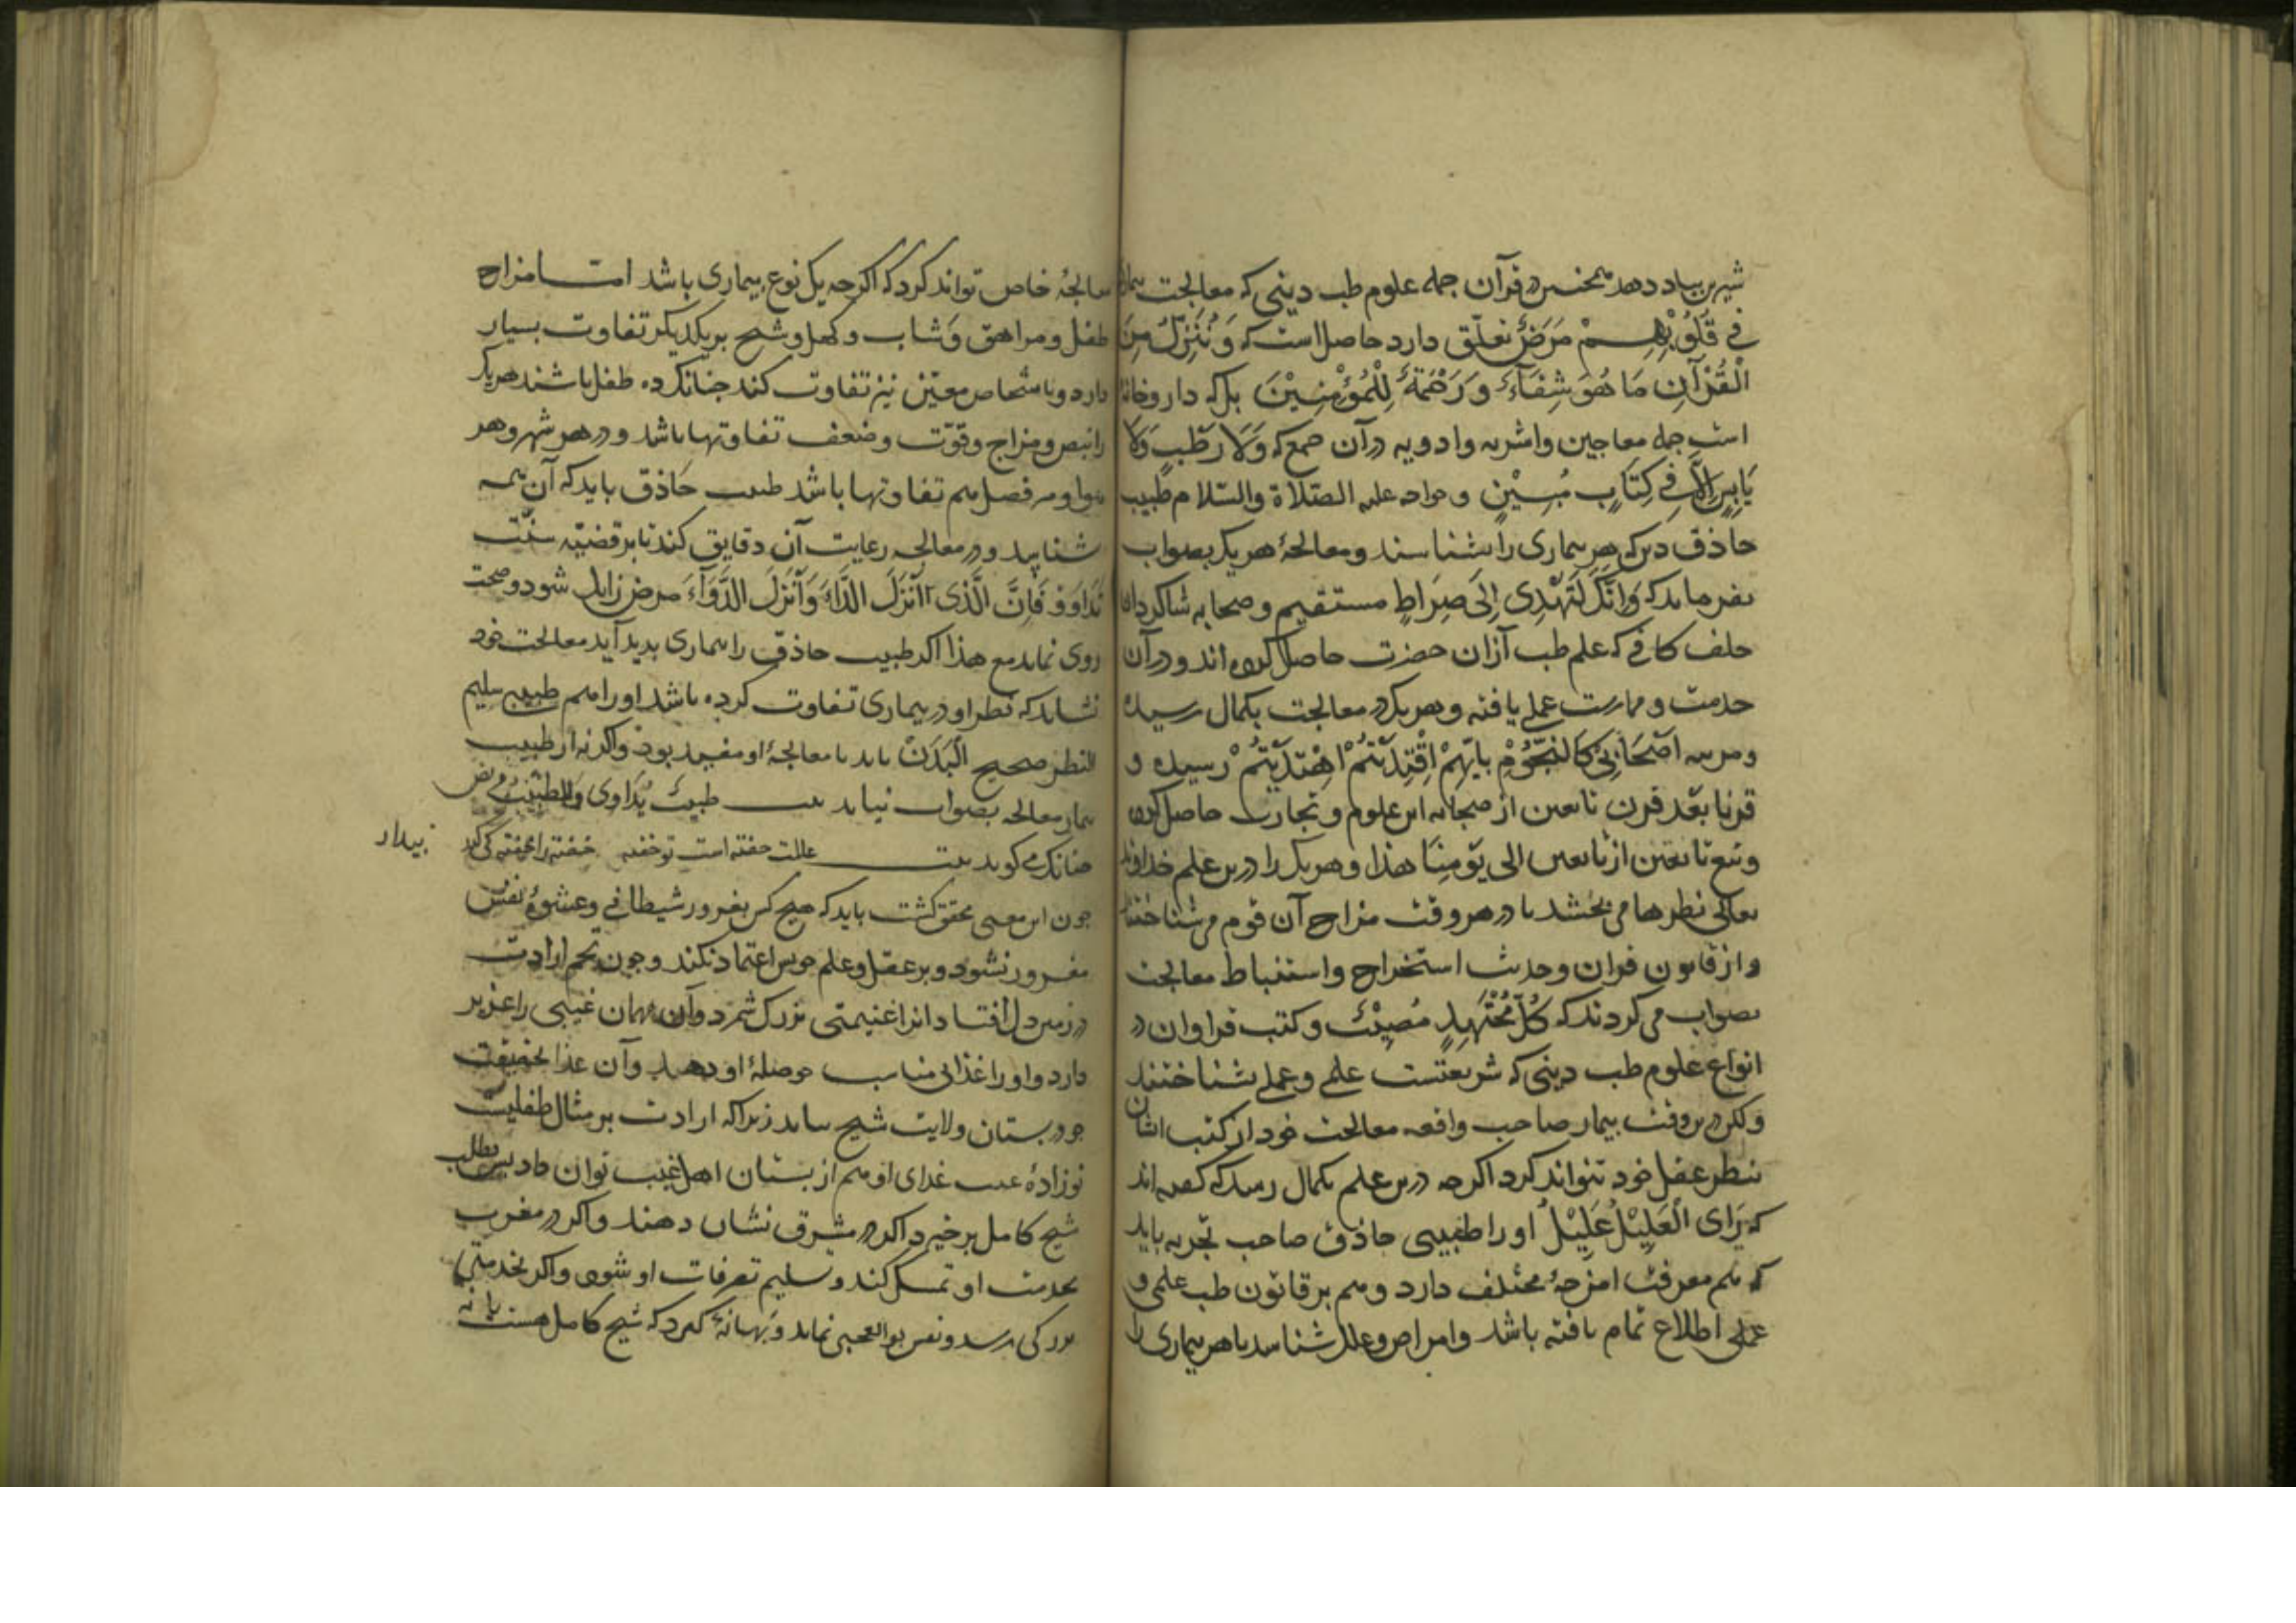 شیرین بباد دهد همچنین در قرآن جمله علوم طب دینی که معالجت بیمار
فِي قُلُوْبِهِمْ مَرَضٌ تعلّق دارد حاصل است که وَ نُنَزِّلُ مِنَ
الْقُرْآنِ مَا هُوَ شِفَآءٌ وَرَحْمَةٌ لِلْمُؤْمِنِيْنَ بلکه داروخانۀ
است جمله معاجین و اشربه و ادویه در آن جمع که وَلَا رَطْبٍ وَلَا
يَابِسٍ اِلَّا فِي كِتَابٍ مُبِيْنٍ و خواجه علیه الصّلاة والسّلام طبیب
حاذق دین که هر بیماری را شناسند و معالجۀ هر یک بصواب
بفرماید که وَاِنَّكَ لَتَهْدِى اِلَى صِرَاطٍ مستقیم و صحابه شاکردان
خلف کافی که علم طب از ان حضرت حاصل کرده اند و در آن
خدمت و ممارست عملی یافته و هر یک در معالجت بکمال رسیده
و مرتبه اَصْحَابِى كَالنُّجُوْمِ بِاَيِّهِمْ اِقْتَدَيْتُمْ اِهْتَدَيْتُمْ رسیده و
قرنا بعد قرن تابعین از صحابه این علوم و تجارب حاصل کرده
و تبع تابعین از تابعین الی يَوْمِنَا هذا و هر یک را درین علم خداوند
تعالی نظرها می بخشد تا در هر وقت مزاج آن قوم می شناختند
و از قانون قران و حدیث استخراج و استنباط معالجت
بصواب می کردند که كُلُّ مُجْتَهِدٍ مُصِيْبٌ و کتب فراوان در
انواع علوم طب دینی که شریعتست علمی و عملی بشناختند
ولکن درین وقت بیمار صاحب واقعه معالجت خود از کتب ایشان
بنظر عقل خود نتواند کرد اکرچه درین علم بکمال رسد که کفته اند
که رَاى الْعَلِيْلِ عَلِيْلٌ او را طبیبی حاذق صاحب تجربه باید
که هم معرفت امزجۀ مختلف دارد و هم بر قانون طب علمی و
عملی اطلاع تمام یافته باشد و امراض و علل شناسد تا هر بیماری را
معالجۀ خاص تواند کرد که اکرچه یک نوع بیماری باشد امّا مزاج
طفل و مراهق و شاب و کهل و شیخ بر یکدیکر تفاوت بسیار
دارد و باشخاص معیّن نیز تفاوت کند چنانک ده طفل باشند هر یک
را نبض و مزاج و قوّت و ضعف تفاوتها باشد و در هر شهر و هر
هوا و هر فصل هم تفاوتها باشد طبیب حَاذق باید که آن همه
شناسد و در معالجه رعایت آن دقایق کند تا بر قضیّه سنّت
تَدَاوَوْ فَاِنَّ الَّذِى اَنْزَلَ الدَّاءَ وَاَنْزَلَ الدَّوَآءَ مرض زایل شود و صحت
روی نماید مع هذا اکر طبیب حاذق را بیماری بدید آید معالجت خود
نشاید که نظر او در بیماری تفاوت کرده باشد او را هم طبیبی سلیم
النظر صحیح اَلْبَدَنْ باید تا معالجۀ او مفید بود و اکر نه از طبیب
بیمار معالجه بصواب نیاید بیت طَبِيبٌ يُدَاوى وَالطَّبِيْبُ مَريض
چنانک می کوید بیت عالمت خفته است تو خفته خفته را خفته کی کند
بیدار
چون این معنی محقق کشت باید که هیچ کس بغرور شیطانی و عشوۀ نفس
مغرور نشود و بر عقل و علم خویش اعتماد نکند و چون تخم ارادت
در زمین دل افتاد انرا غنیمتی بزرک شمرد و آن مهمان غیبی را عزیز
دارد و او را غذائی مناسب حوصلۀ او دهد و آن غذا بحقیقت
جز در بستان ولایت شیخ نیابد زیرا که ارادت بر مثال طفلیست
نوزادۀ غیب غذای او هم از بستان اهل غیب توان داد پس بطلب
شیخ کامل برخیزد اکر در مشرق نشان دهند و اکر در مغرب
بخدمت او تمسک کند و تسلیم تصرفات او شود و اکر بخدمت
بزرکی برسد و نفس بوالعجبی نماید و بهانۀ کیرد که شیخ کامل هست یا نه